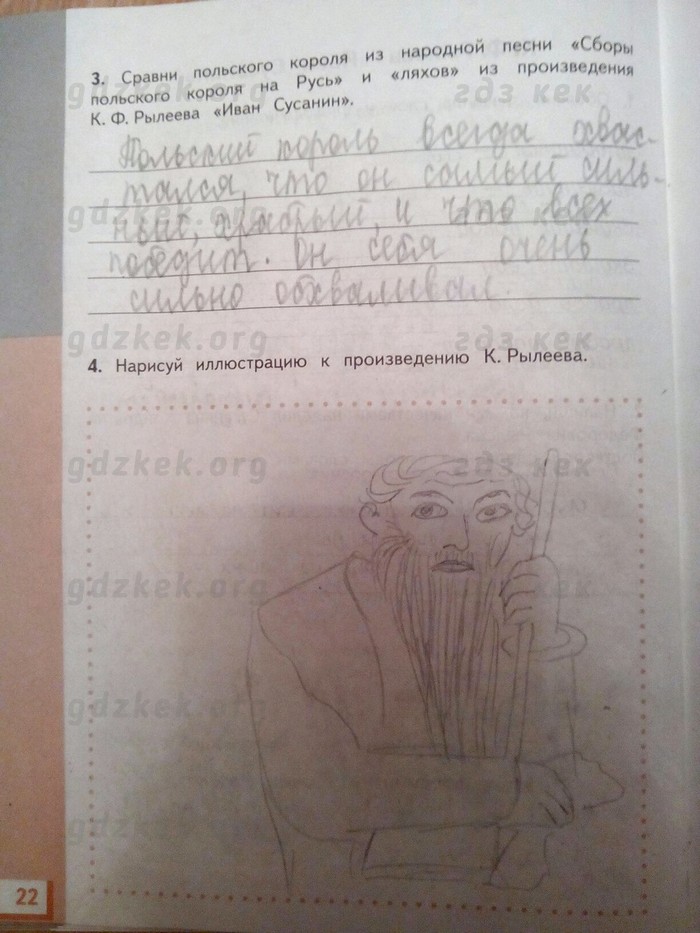 3. Сравни польского короля из народной песни «Сборы
польского короля на Русь» и «ляхов» из произведения
К. Ф. Рылеева «Иван Сусанин».
gdzkek.org гдз кек
Польский король всегда хвас-
тался, что он самый силь-
ный, храбрый, и что всех
gdzkek.org
победит. Он себя очень
сильно обхваливал.
gdzkek.org гдз кек
4. Нарисуй иллюстрацию к произведению К. Рылеева.
gdzkek.org гдз кек
gdzkek.org
gdzkek.org
gdzkek.org
22